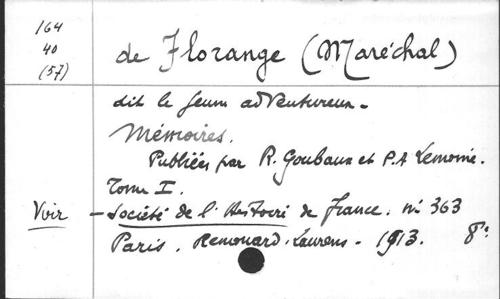 164
40
(57)
de Florange (Maréchal)
dit le jeune adventureux -
Mémoires.
Publiées par R. Goubaux et P.A Lemoine.
Tome I.
Voir - Société de l'Histoire de France. n° 363
Paris. Renouard-Laurens - 1913. 8°